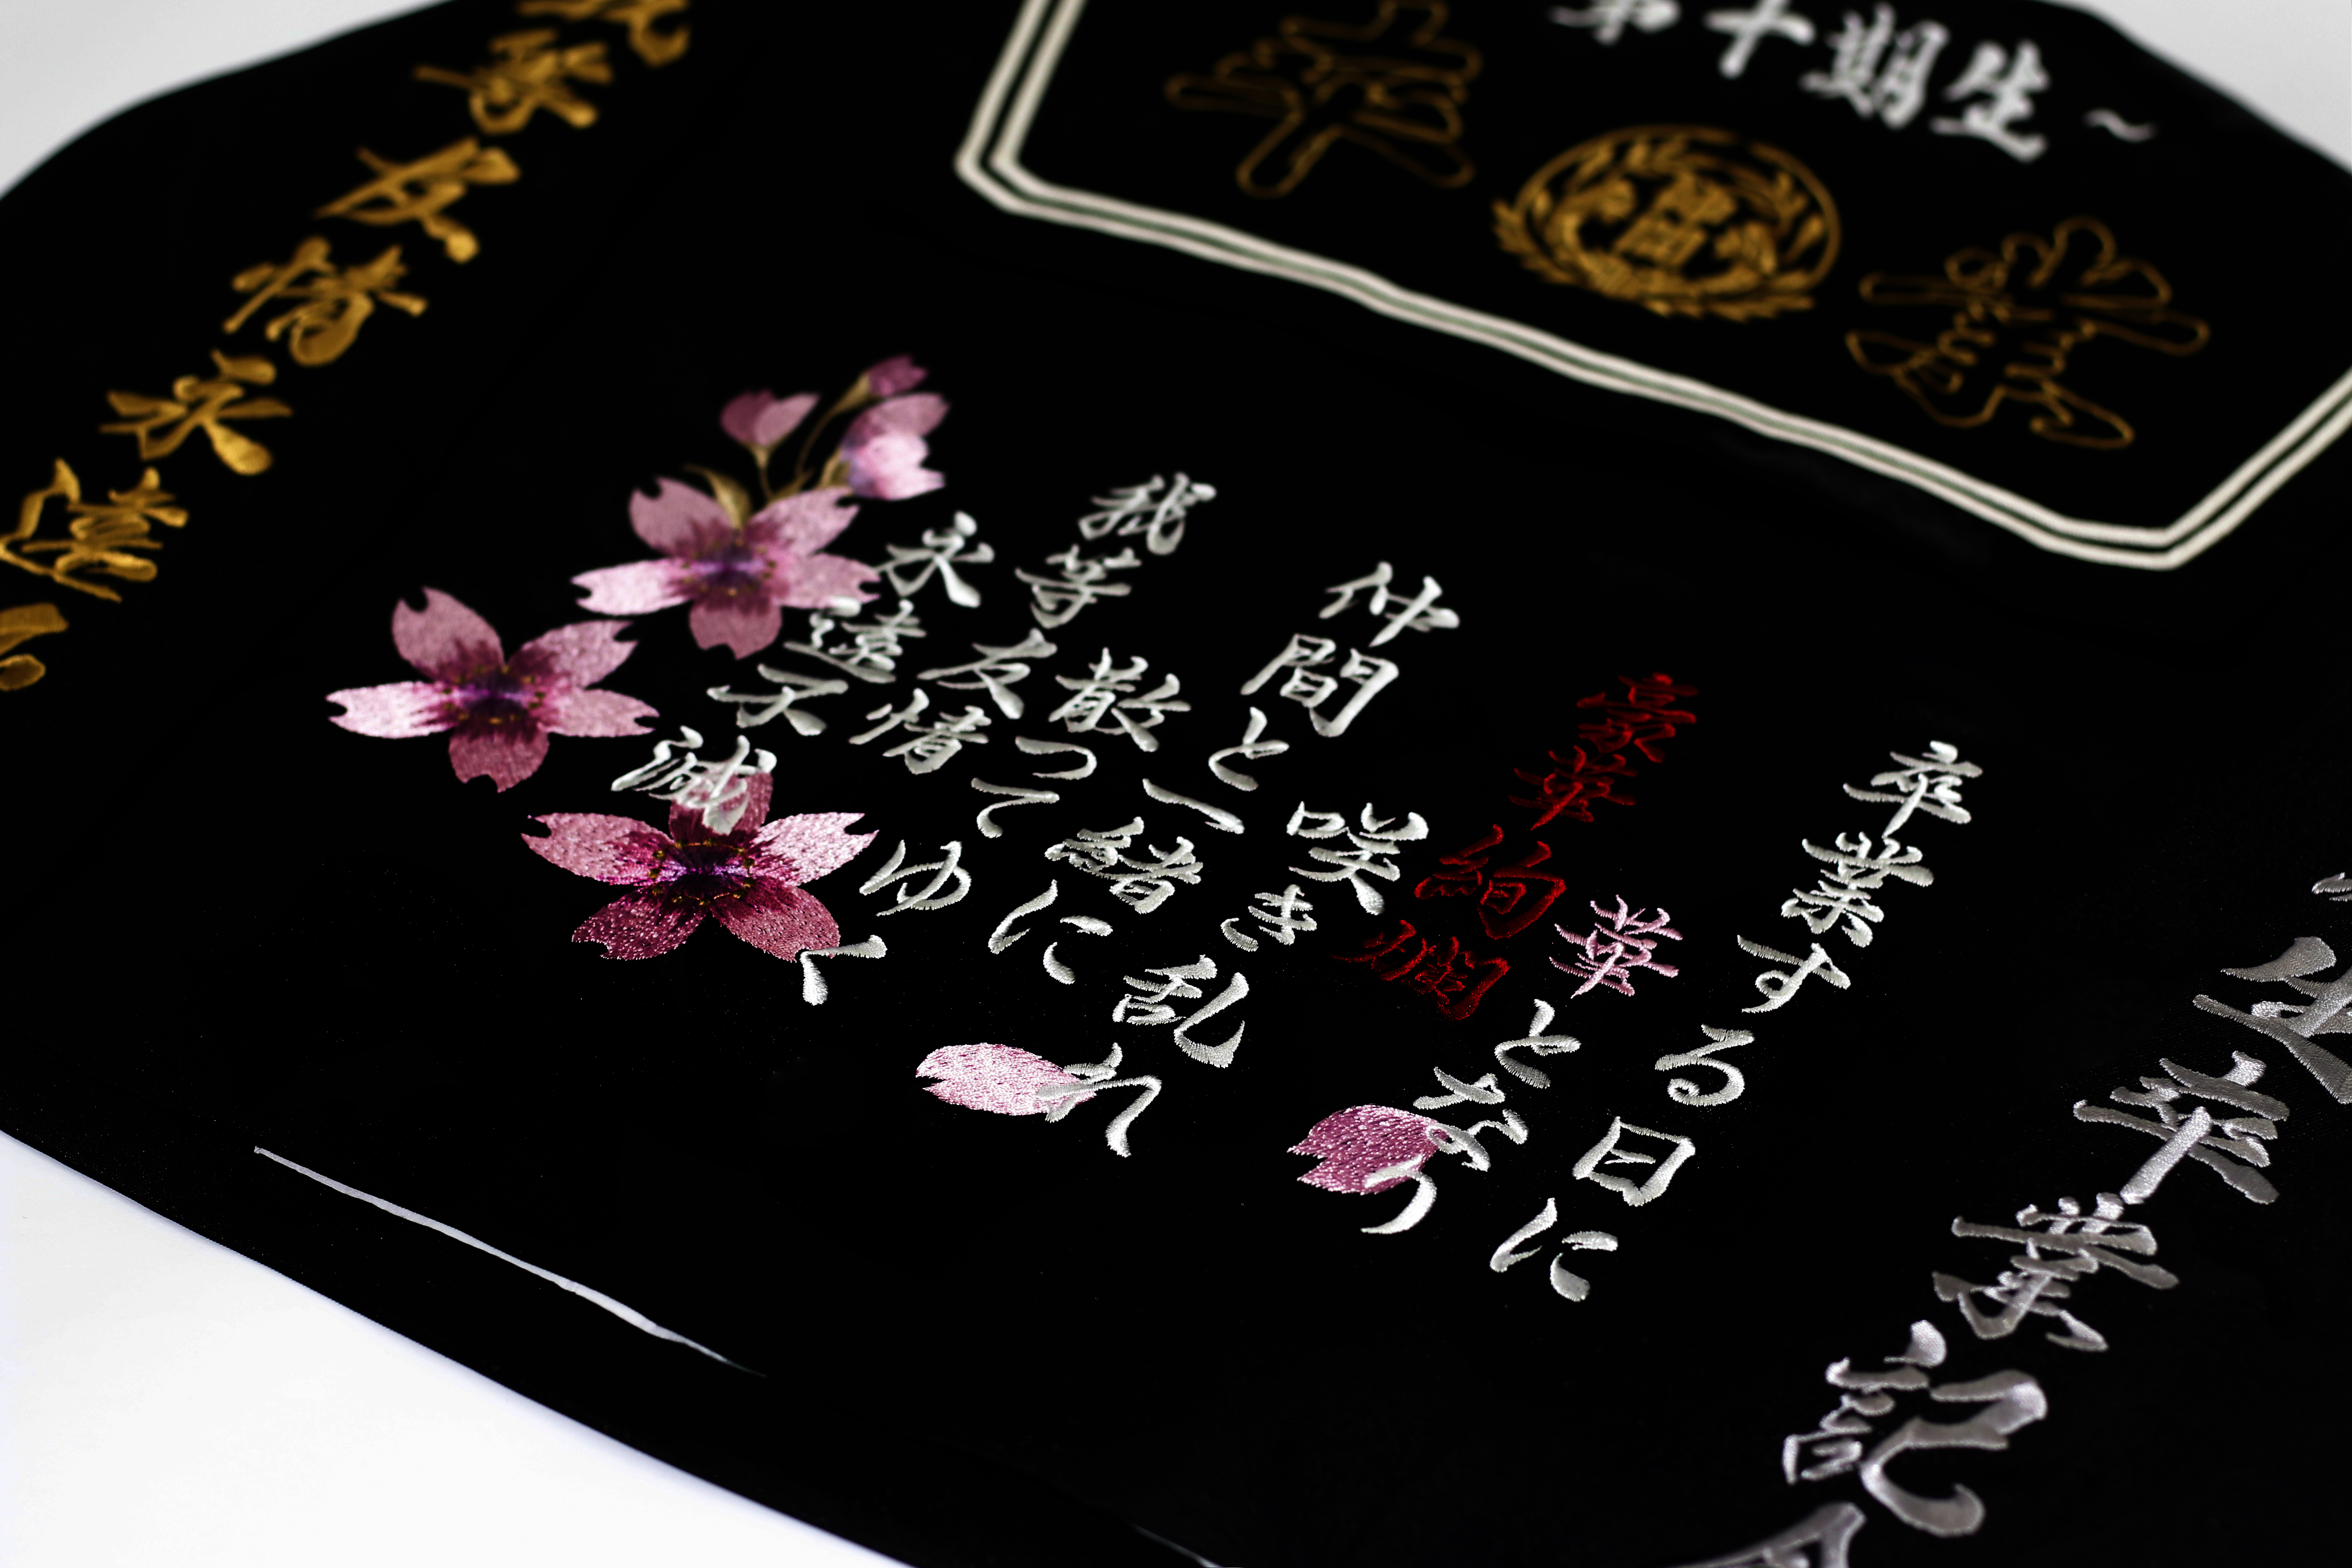 第十期生~
生卒業記
卒業する日に
華となり
豪華絢爛
咲き乱れ
仲間と一緒に
散ってゆく
我等友情
永遠不滅
等友情永遠